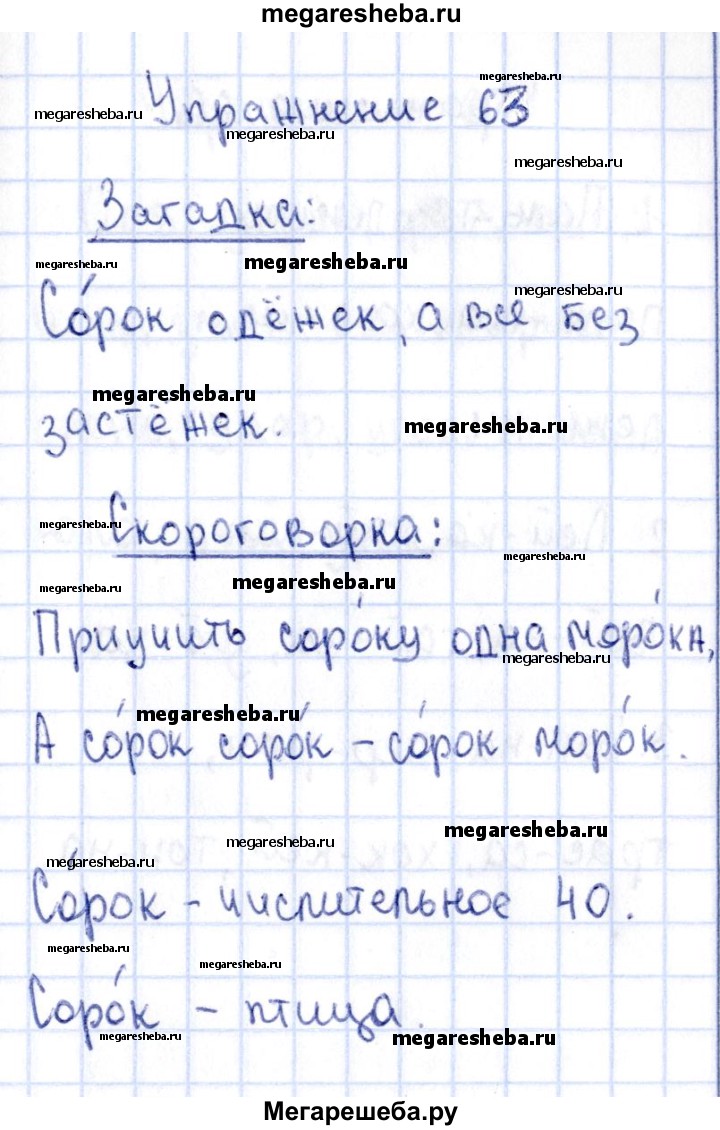 megaresheba.ru
megaresheba.ru
megaresheba.ru
Упражнение 63
megaresheba.ru
megaresheba.ru
Загадка:
megaresheba.ru
megaresheba.ru
megaresheba.ru
Со́рок одёжек, а все без
megaresheba.ru
застёжек.
megaresheba.ru
megaresheba.ru
Скороговорка:
megaresheba.ru
megaresheba.ru
megaresheba.ru
Приучить соро́ку одна моро́ка,
megaresheba.ru
megaresheba.ru
А со́рок соро́к – со́рок моро́к.
megaresheba.ru
megaresheba.ru
megaresheba.ru
Со́рок – числительное 40.
megaresheba.ru
megaresheba.ru
Соро́к – птица.
megaresheba.ru
megaresheba.ru
Мегарешеба.ру